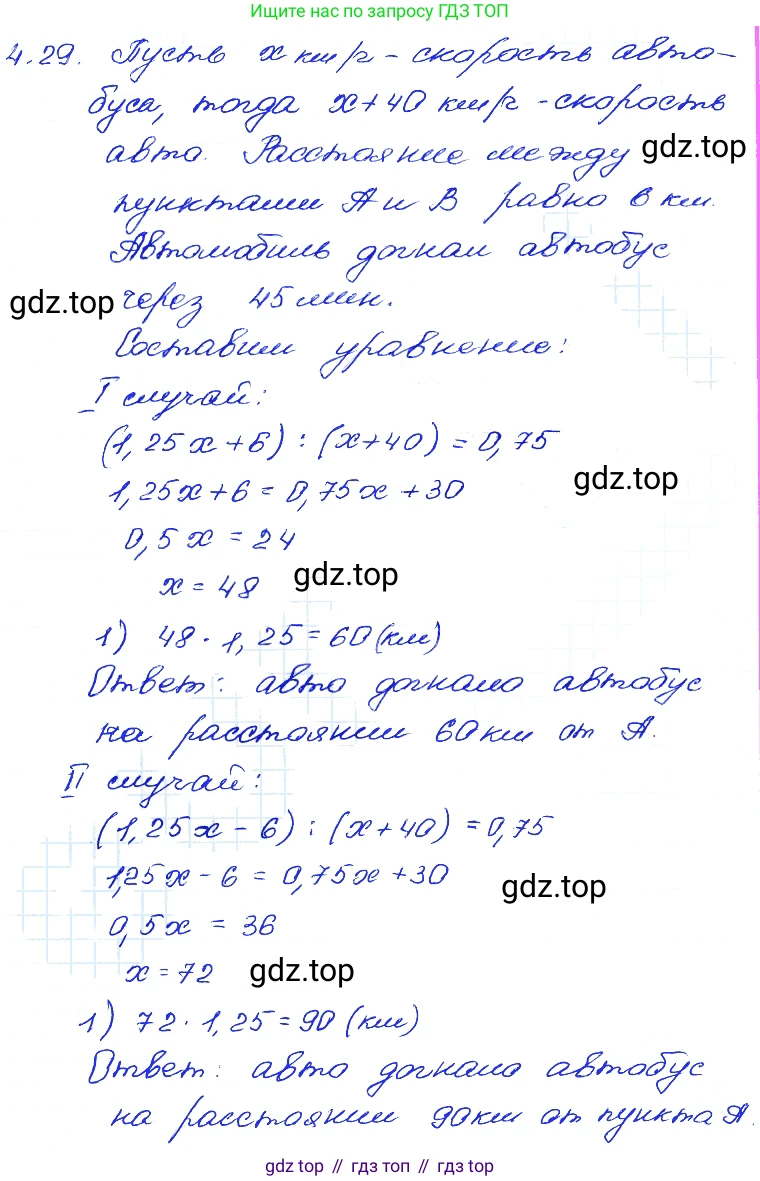 Ищите нас по запросу ГДЗ ТОП
4.29. Пусть x км/ч - скорость авто-
буса, тогда x+40 км/ч - скорость
авто. Расстояние между
gdz.top
пунктами А и В равно 6 км.
Автомобиль догнал автобус
gdz.top
через 45 мин.
Составим уравнение:
I случай:
(1,25x+6) : (x+40) = 0,75
1,25x+6 = 0,75x+30
gdz.top
0,5x = 24
x = 48
gdz.top
1) 48 · 1,25 = 60 (км)
Ответ: авто догнало автобус
на расстоянии 60 км от А.
II случай:
(1,25x - 6) : (x+40) = 0,75
1,25x - 6 = 0,75x+30
gdz.top
0,5x = 36
x = 72
gdz.top
1) 72 · 1,25 = 90 (км)
Ответ: авто догнало автобус
на расстоянии 90 км от пункта А.
gdz top // гдз топ // gdz top